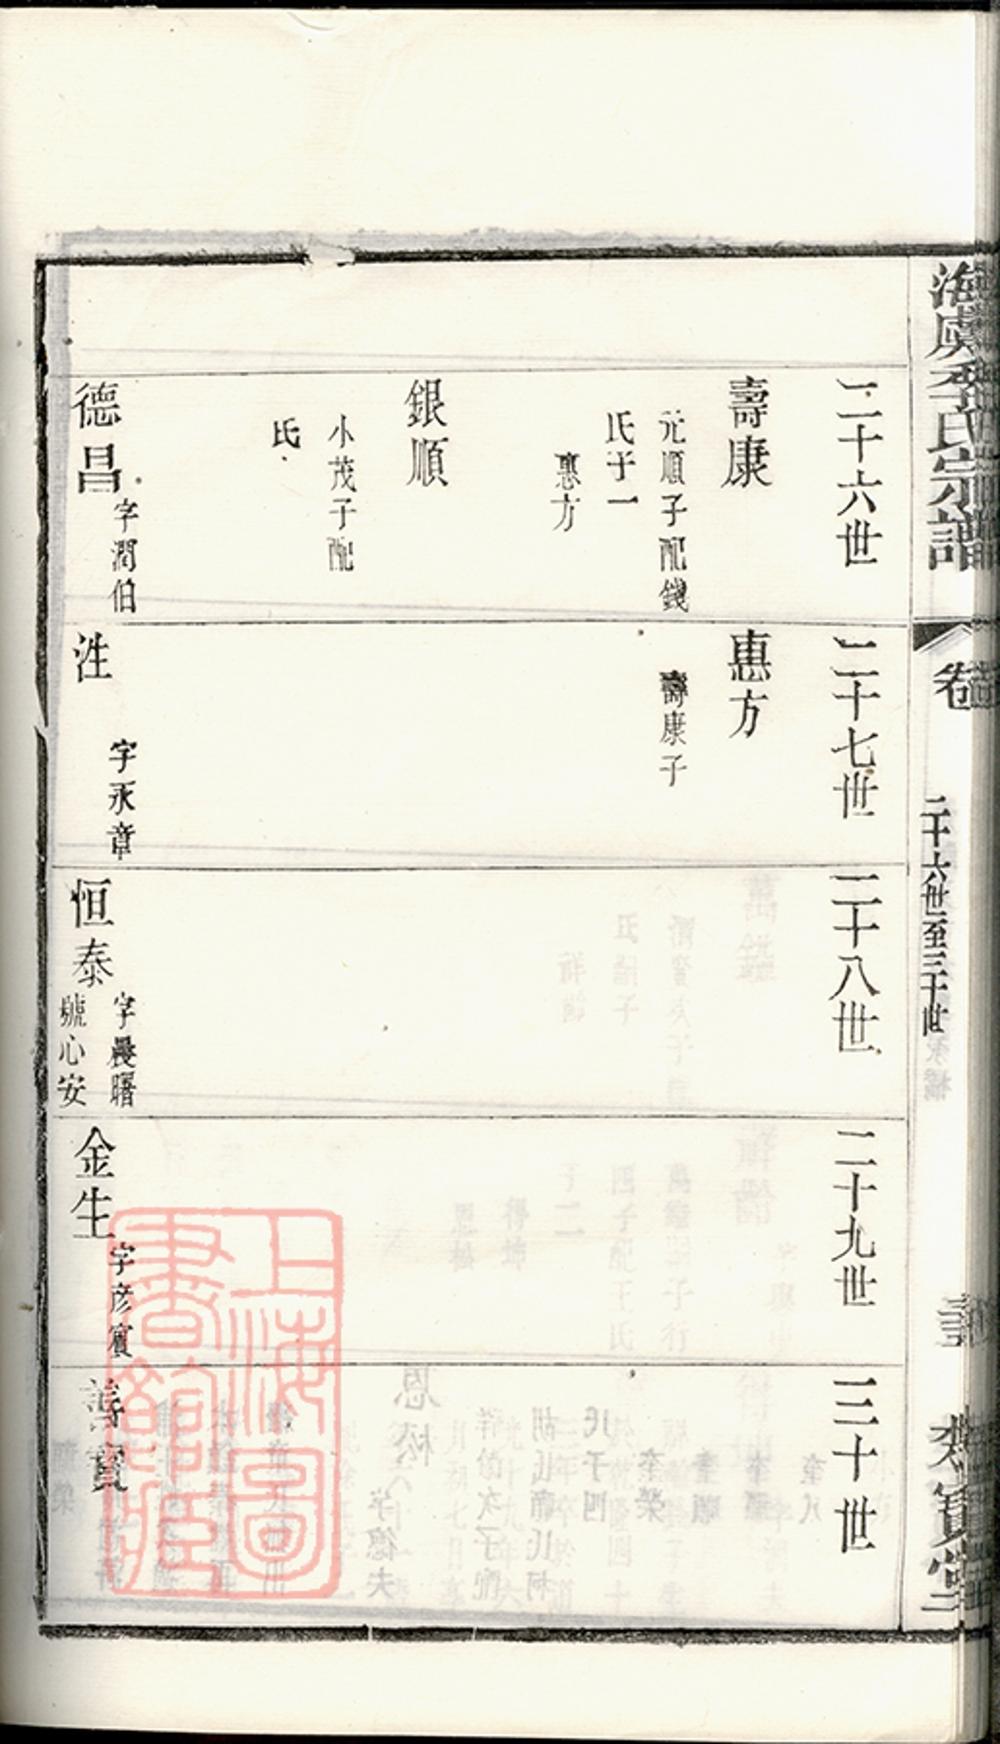 二十六世
壽康
元順子配錢
氏子一
惠方
銀順
小茂子配
氏
德昌
字潤伯
二十七世
惠方
壽康子
泩
字永章
二十八世
恒泰
字晨曙
號心安
二十九世
金生
字彦賓
三十世
善寶
氏宗譜
二十六世至三十世
上海圖書館藏